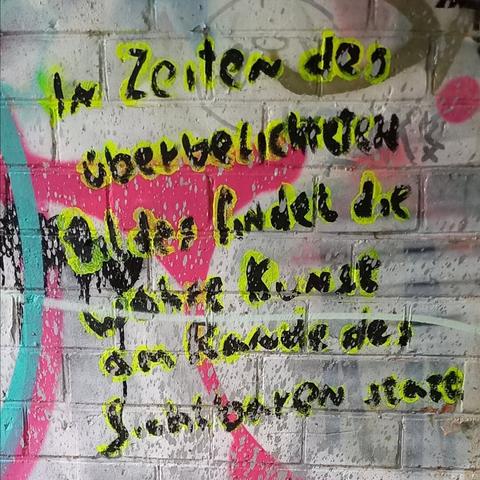 In Zeiten des
überbelichteten
Bildes findet die
wahre Kunst
am Rande des
Sichtbaren statt